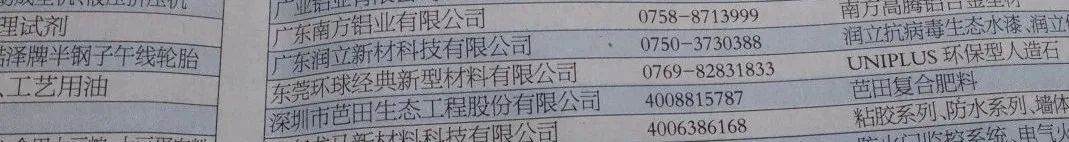 理试剂
浩泽牌半钢子午线轮胎
、工艺用油
广东南方铝业有限公司 0758-8713999 南方高腾铝合金型材
广东润立新材科技有限公司 0750-3730388 润立抗病毒生态水漆、润立
东莞环球经典新型材料有限公司 0769-82831833 UNIPLUS 环保型人造石
深圳市芭田生态工程股份有限公司 4008815787 芭田复合肥料
新材料科技有限公司 4006386168 粘胶系列、防水系列、墙体
防火门监控系统、电气火